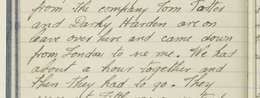 from the company Tom
and Darky Harden are on
leave over here and came down
from London to see me. We had
about a hour together and
then they had to go. They